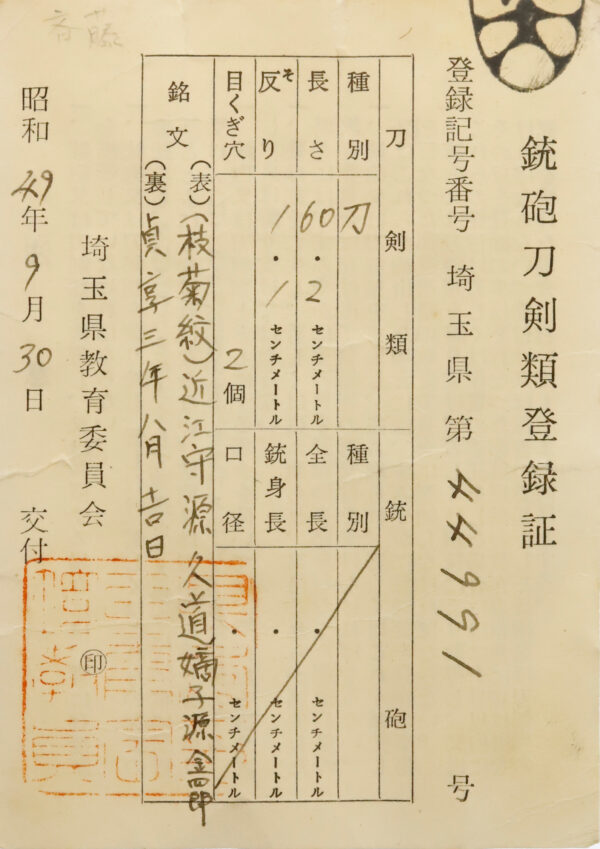 銃砲刀剣類登録証
登録記号番号 埼玉県 第 44991 号
刀剣類
種別 刀
長さ 60.2 センチメートル
反り そ 1.1 センチメートル
目くぎ穴 2個
銃砲
種別
全長 ・ センチメートル
銃身長 ・ センチメートル
口径 ・ センチメートル
銘文
(表)(枝菊紋)近江守源久道嫡子源金四郎
(裏)貞享三年八月吉日
埼玉県教育委員会 印
昭和49年9月30日 交付
斉藤